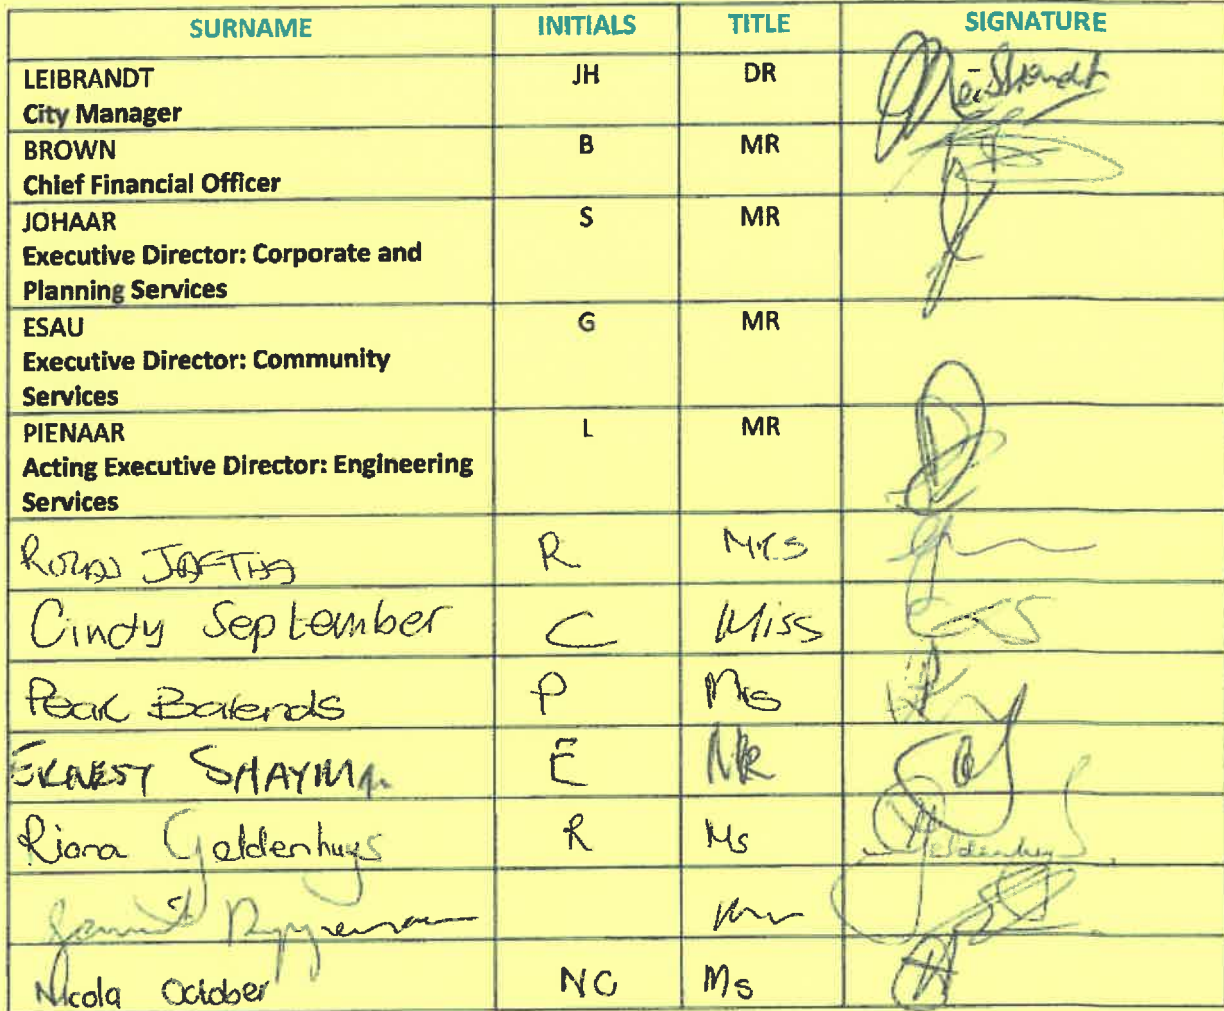 SURNAME INITIALS TITLE SIGNATURE
LEIBRANDT JH DR
City Manager
BROWN B MR
Chief Financial Officer
JOHAAR S MR
Executive Director: Corporate and
Planning Services
ESAU G MR
Executive Director: Community
Services
PIENAAR L MR
Acting Executive Director: Engineering
Services
JAFTHA R Mrs
Cindy September C Miss
Barends P Mrs
ERNEST E MR
Riana Geldenhuys R Ms Geldenhuys
Nicola October NC Ms